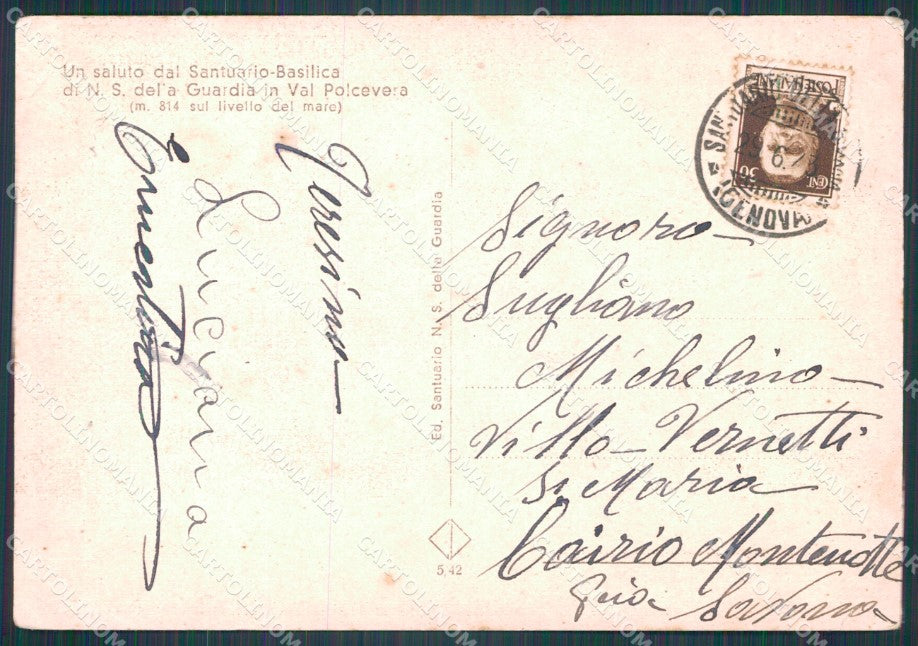 Un saluto dal Santuario-Basilica
di N. S. della Guardia in Val Polcevera
(m. 814 sul livello del mare)
Ernestina
Luciana
Teresina
Ed. Santuario N. S. della Guardia
5,42
POSTE ITALIANE
CENT 30
Signora
Sugliano
Michelina
Villa Vernetti
S. Maria
Cairio Montenotte
Savona
CARTOLINOMANIA